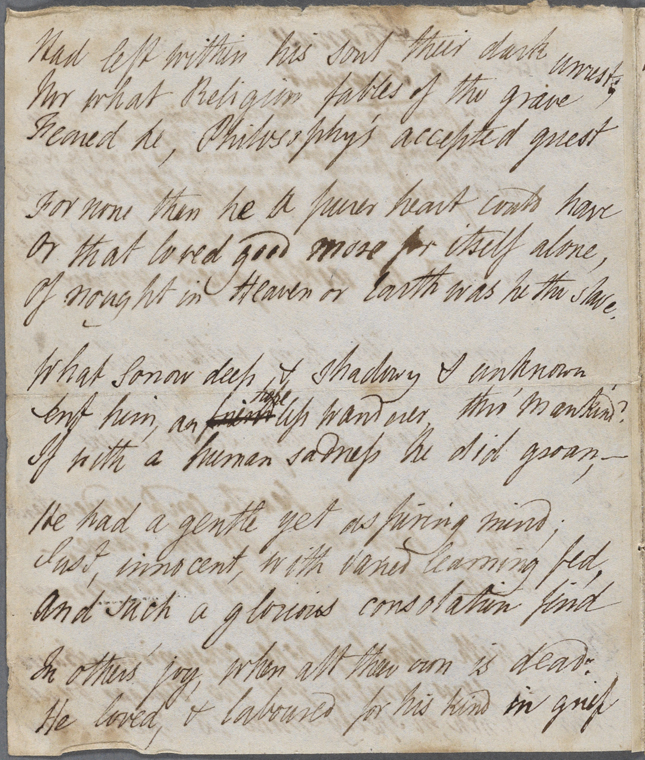 Had left within his soul their dark unrest;
Nor what Religion fables of the grave
Feared he, Philosophy's accepted guest
For none than he a purer heart could have
Or that loved good more for itself alone,
Of nought in Heaven or Earth was he the slave.
What sorrow deep & shadowy & unknown
hope
Sent him, a less wanderer thro' Mankind?
If with a human sadness he did groan,—
He had a gentle yet aspiring mind;
Just, innocent, with varied learning fed,
And such a glorious consolation find
In others' joy, when all their own is dead:
He loved, & laboured for his kind in grief